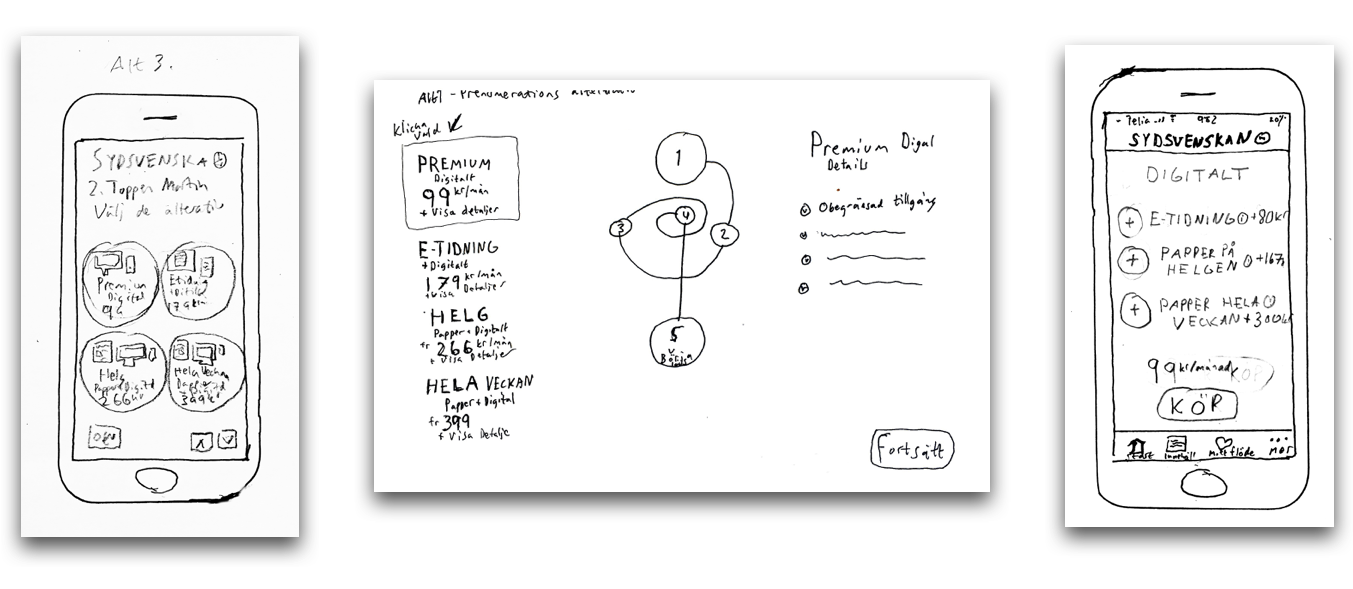 Alt 3.
SYDSVENSKA
2. Topper Martin
Välj de alternativ
Premium
Digital
Etidning
179kr
Hela
Papper Digital
266kr
Hela Veckan
399kr
Alt1 - Prenumerations alternativ
Klicka
PREMIUM
Digitalt
99 kr/mån
+ Visa detaljer
E-TIDNING
+ Digitalt
179 kr/mån
+ Visa Detaljer
HELG
Papper + Digitalt
fr 266 kr/mån
+ Visa Detaljer
HELA VECKAN
Papper + Digital
fr 399
+ Visa Detalje
1
2
3
4
5
Premium Digal
Details
Obegränsad tillgång
Fortsätt
Telia 982 20%
SYDSVENSKAN
DIGITALT
+ E-TIDNING +80kr
+ PAPPER PÅ
HELGEN +167
+ PAPPER HELA
VECKAN +300kr
99kr/månad KÖP
KÖP
Start Innehåll Mitt flöde mer